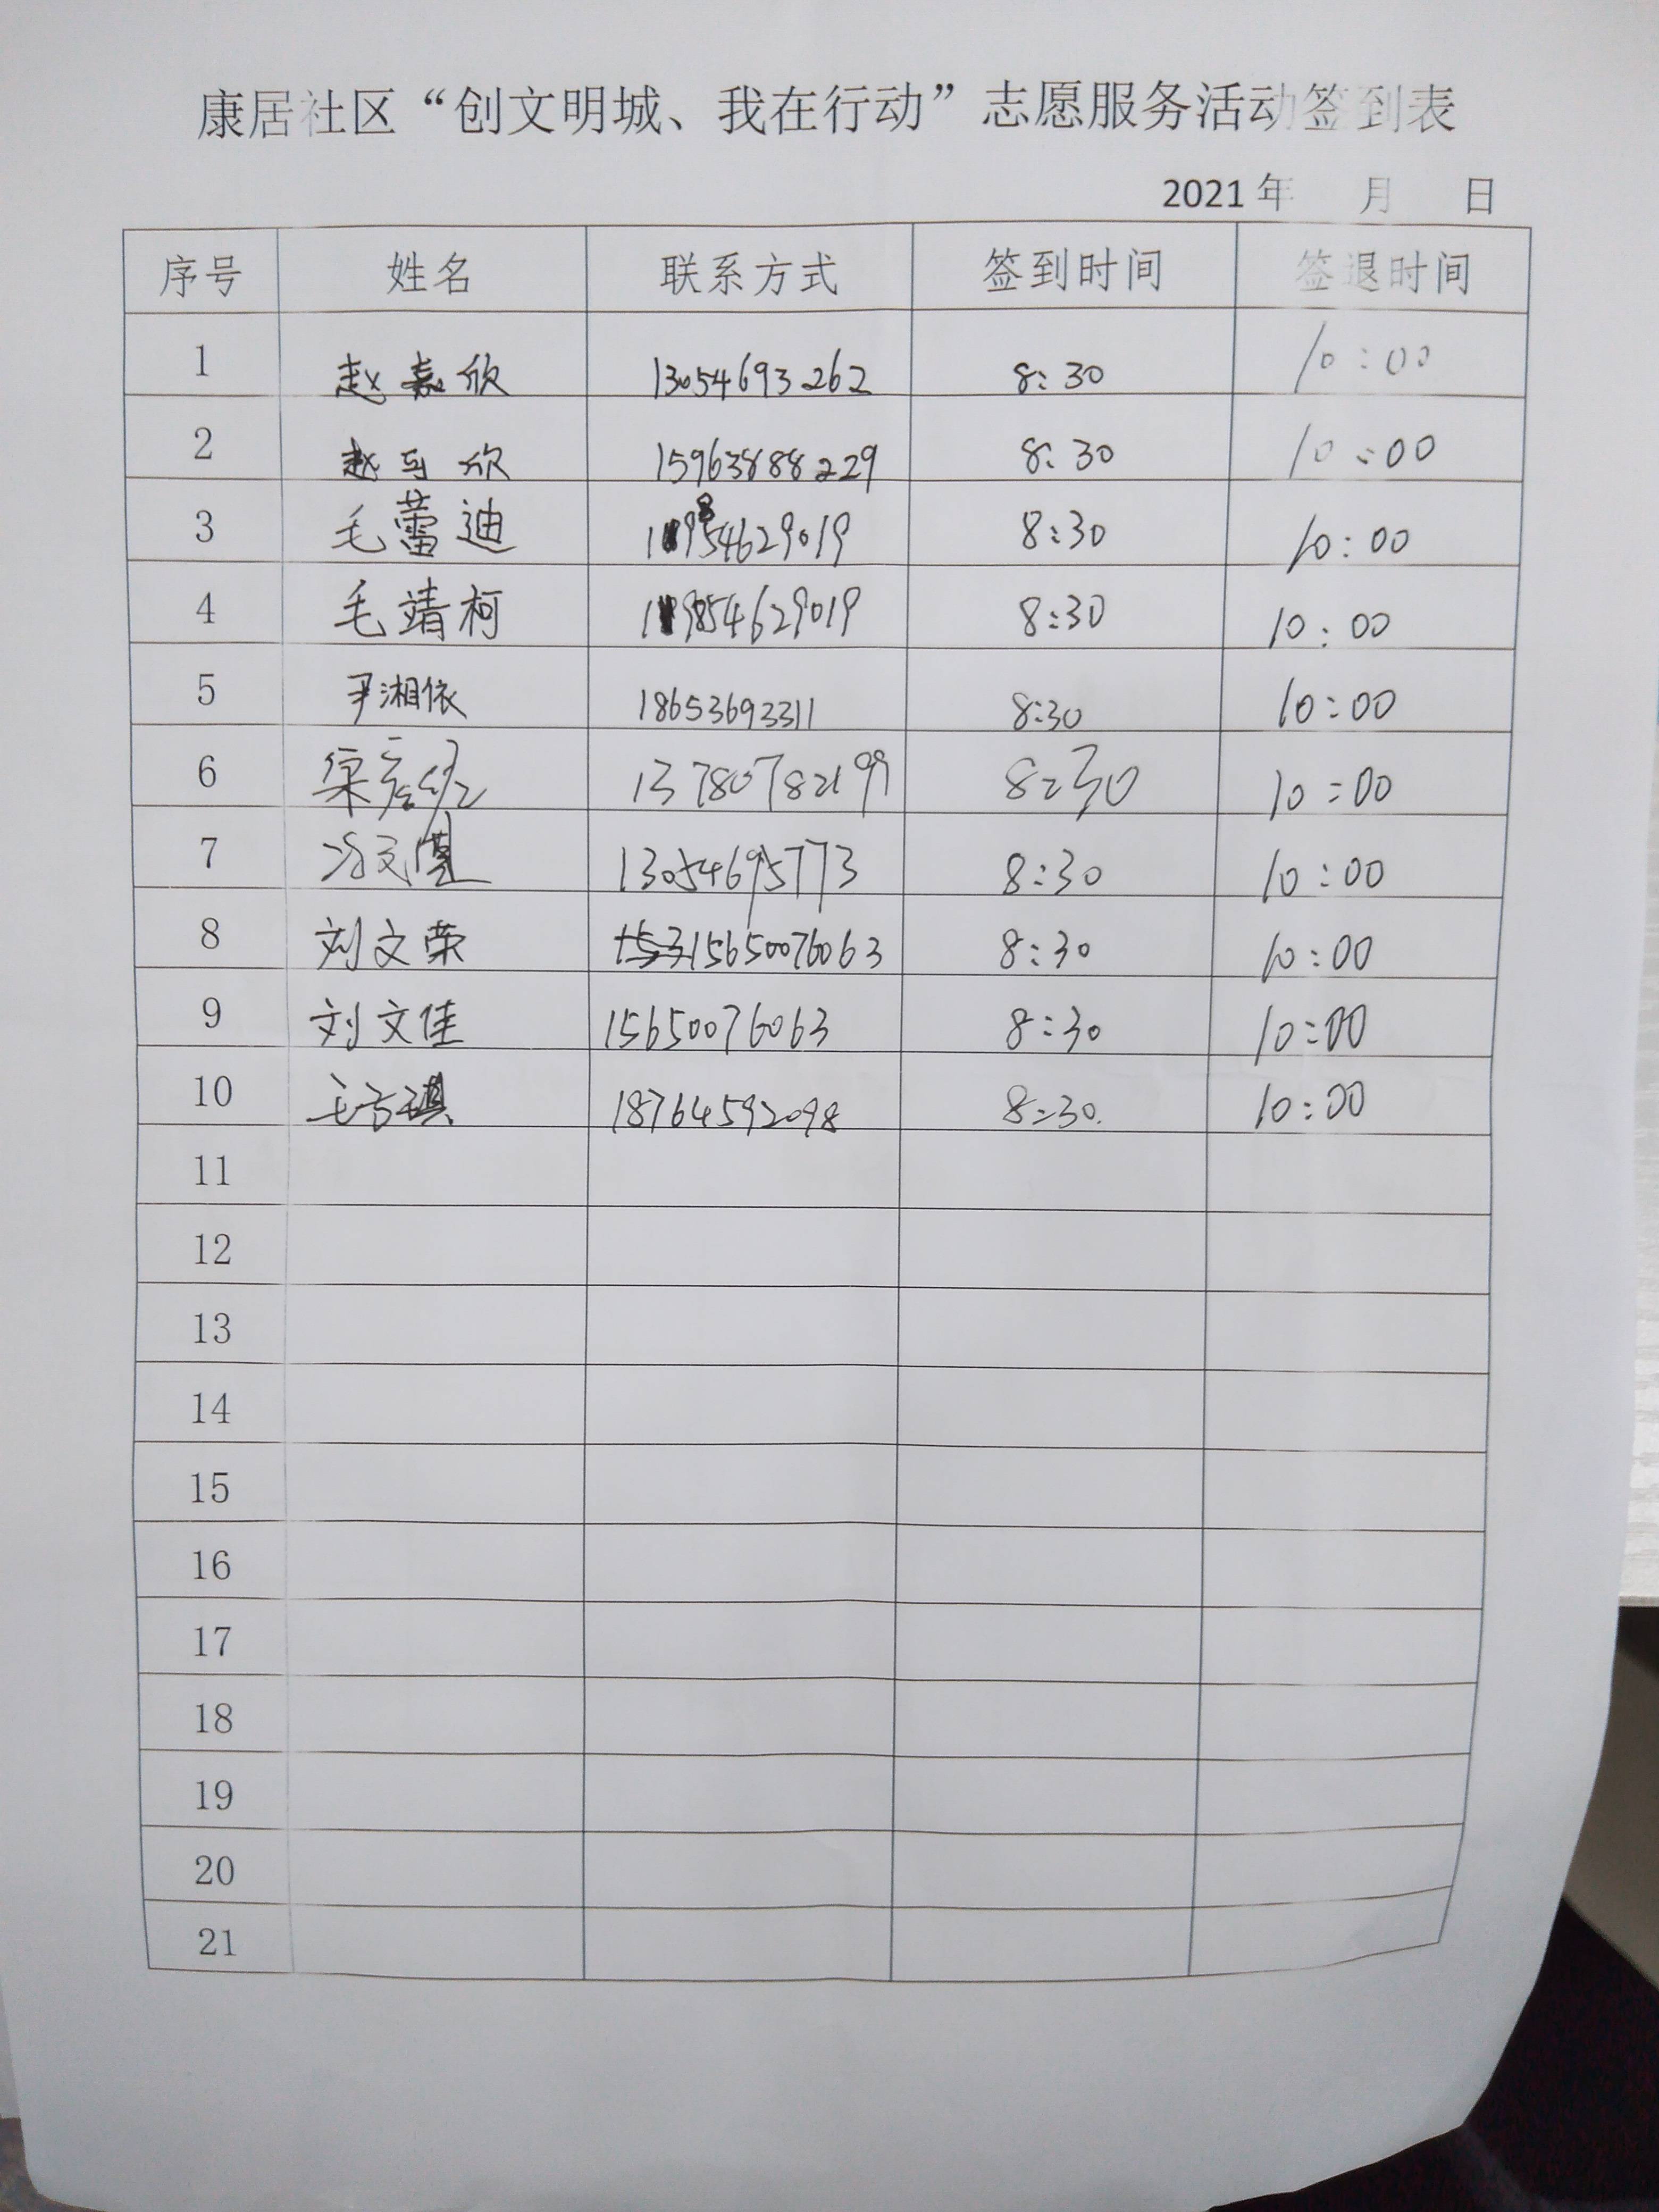 康居社区“创文明城、我在行动”志愿服务活动签到表
2021年 月 日
序号 姓名 联系方式 签到时间 签退时间
1 赵嘉欣 13054693262 8:30 10:00
2 赵 欣 15963888229 8:30 10:00
3 毛蕾迪 8:30 10:00
4 毛靖柯 8:30 10:00
5 尹湘依 18653693311 8:30 10:00
6 13780782199 8:30 10:00
7 13054695773 8:30 10:00
8 刘文荣 15650076063 8:30 10:00
9 刘文佳 15650076063 8:30 10:00
10 18764592098 8:30 10:00
11
12
13
14
15
16
17
18
19
20
21